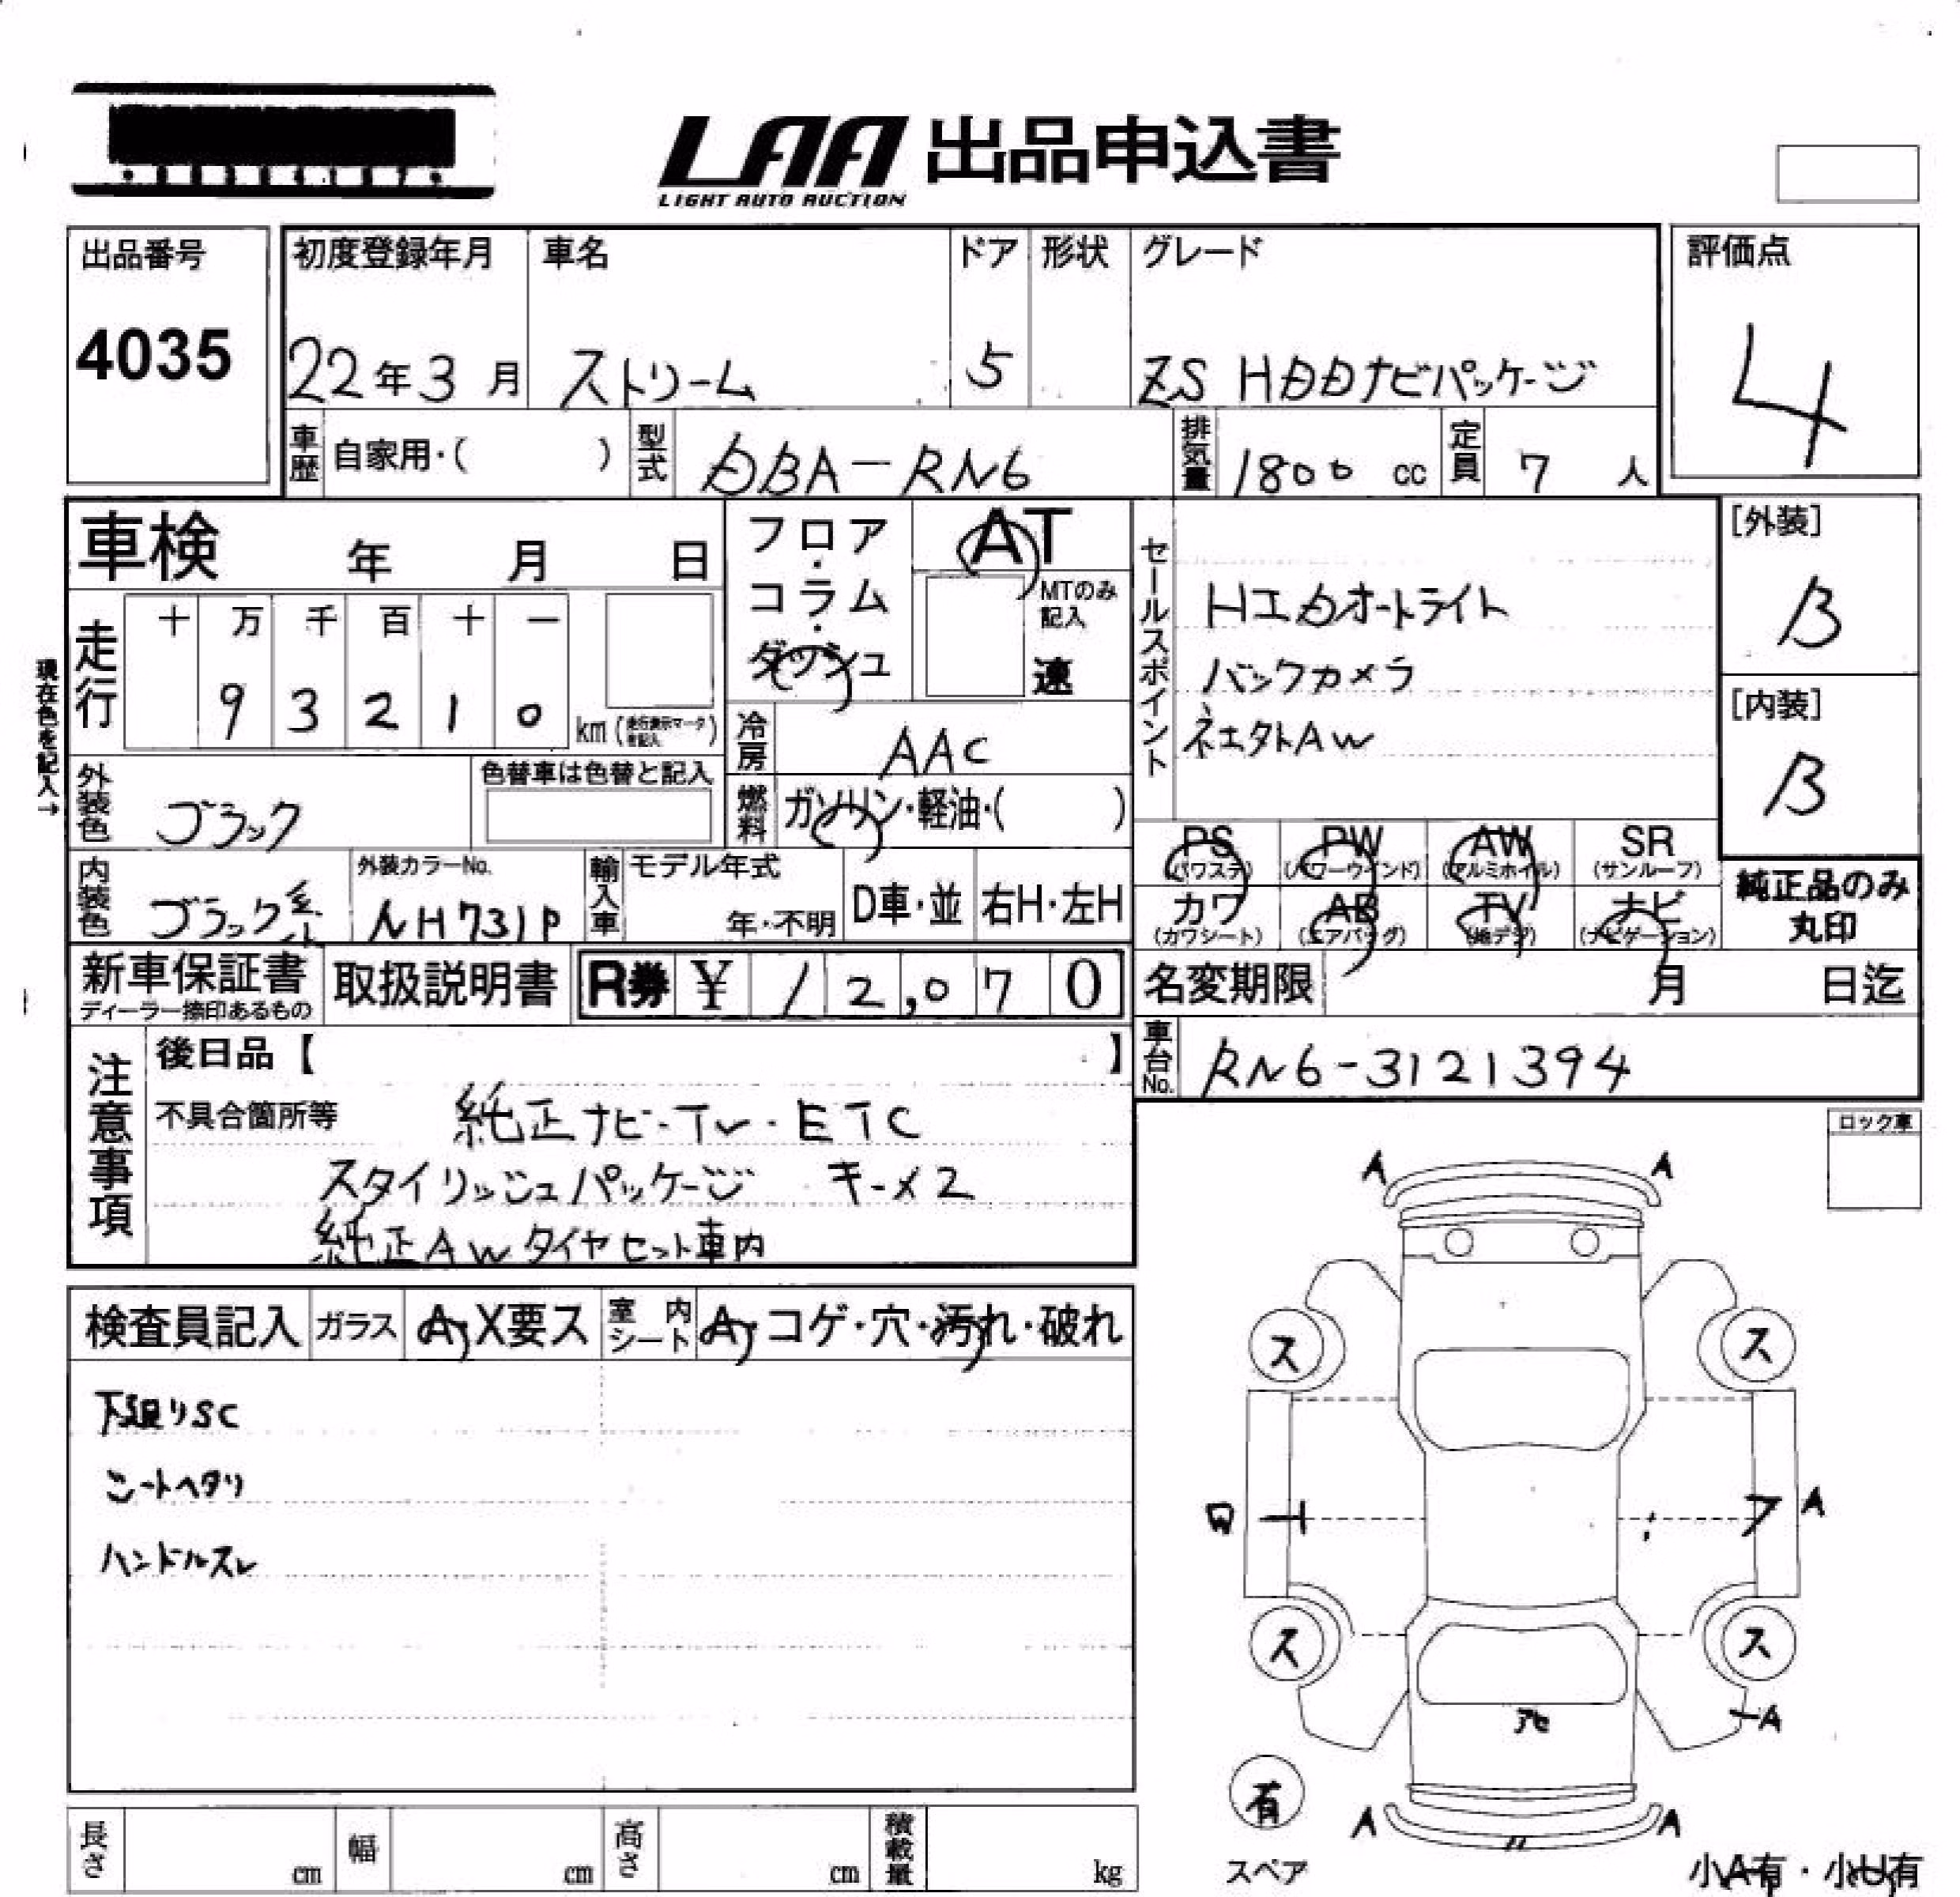 LAA 出品申込書
LIGHT AUTO AUCTION
出品番号
4035
初度登録年月
22年3月
車名
ストリーム
ドア
5
形状
グレード
ZS HDDナビパッケージ
評価点
4
車歴 自家用・( )
型式 DBA-RN6
排気量 1800 cc
定員 7 人
車検 年 月 日
フロア・コラム・ダッシュ
AT
MTのみ記入
速
セールスポイント
HIDオートライト
バックカメラ
AW
[外装]
B
[内装]
B
現在色を記入→
走行
十 万 千 百 十 一
9 3 2 1 0 km
冷房 AAC
燃料 ガソリン・軽油・( )
外装色 ブラック
色替車は色替と記入
内装色 ブラック系
外装カラーNo.
NH731P
輸入車
モデル年式
年・不明
D車・並
右H・左H
PS (パワステ)
PW (パワーウインド)
AW (アルミホイル)
SR (サンルーフ)
カワ (カワシート)
AB (エアバッグ)
TV (地デジ)
ナビ (ナビゲーション)
純正品のみ
丸印
新車保証書
ディーラー捺印あるもの
取扱説明書
R券 ¥ 12,070
名変期限 月 日迄
車台No. RN6-3121394
注意事項
後日品【 】
不具合箇所等
純正ナビ・TV・ETC
スタイリッシュパッケージ キーメ2
純正AWタイヤセット車内
ロック車
検査員記入
ガラス A・X要ス
室内シート A・コゲ・穴・汚れ・破れ
下廻りSC
シートヘタリ
ハンドルスレ
A A
ス ス
A
ス ス
A
A A
有
スペア
小A有・小U有
長さ cm
幅 cm
高さ cm
積載量 kg